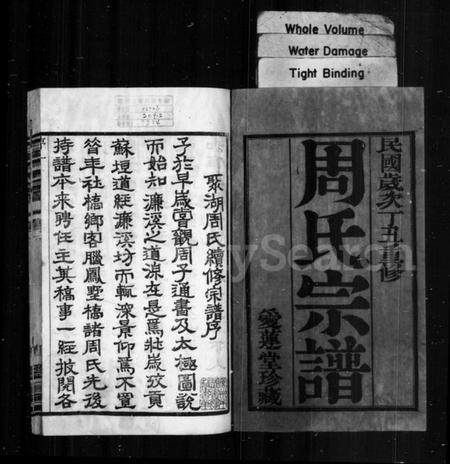 Whole Volume
Water Damage
Tight Binding
民國歲次丁丑重修
周氏宗譜
愛蓮堂珍藏
聚湖周氏續修宗譜序
予於早歲嘗觀周子通書及太極圖說
而始知濂溪之道源在是焉壯歲攷貢
蘇垣道經濂溪坊而輒深景仰焉不置
年社橋鄉客臘鳳墅橋諸周氏先後
持譜本來聘任主其稿事一經披閱各